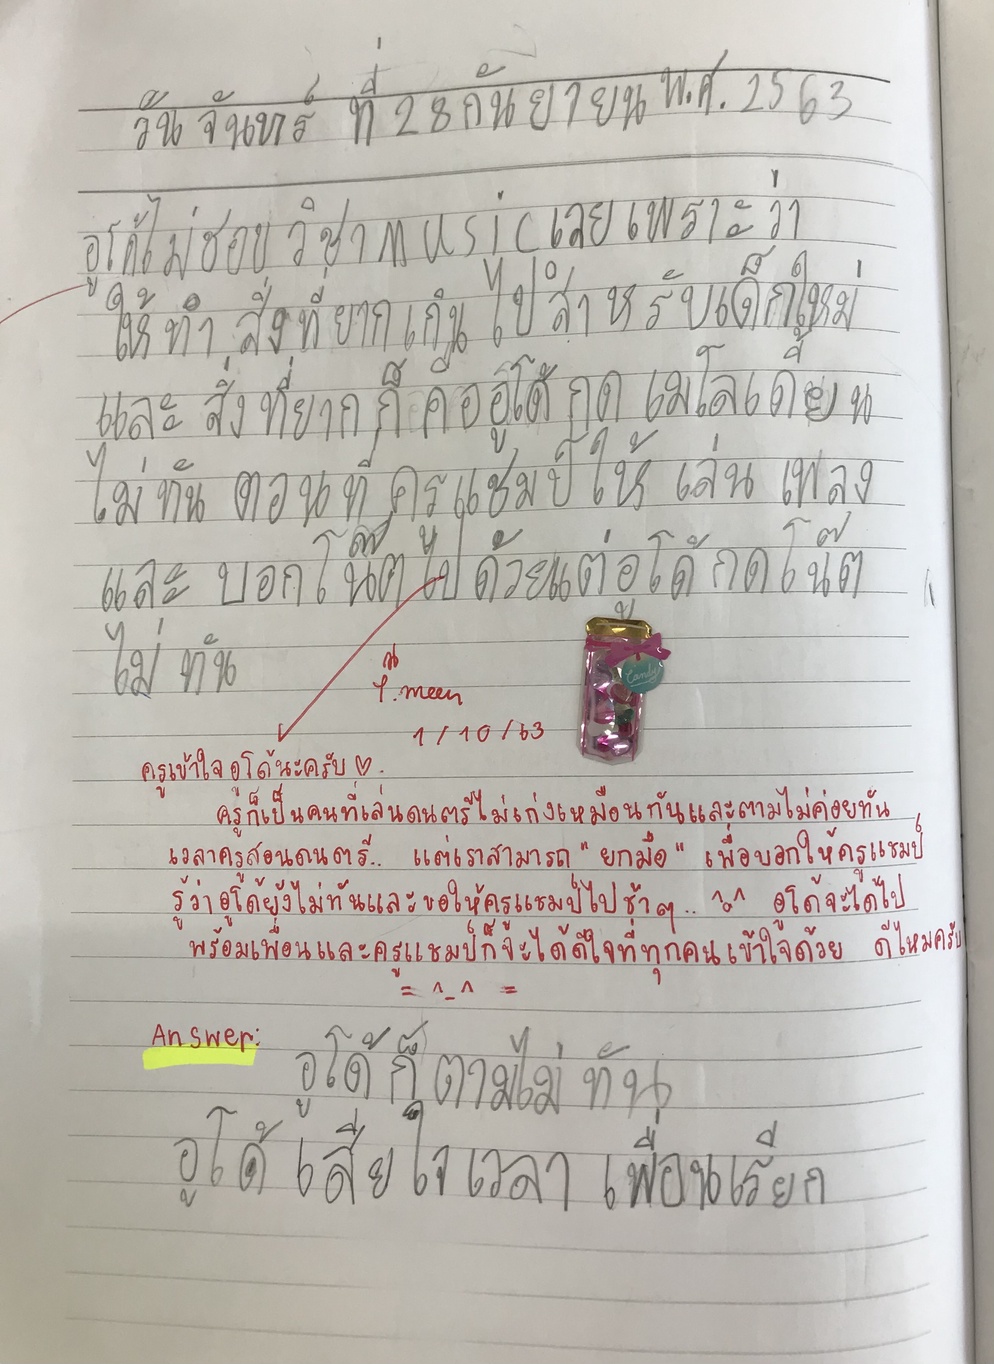 วันจันทร์ ที่ 28 กันยายน พ.ศ. 2563
อูโด้ไม่ชอบวิชา music เลยเพราะว่า
ให้ทำสิ่งที่ยากเกินไปสำหรับเด็กใหม่
และสิ่งที่ยากก็คืออูโด้กดเมโลเดี้ยน
ไม่ทันตอนที่ครูแชมป์ให้เล่นเพลง
และบอกโน๊ตไปด้วยแต่อูโด้กดโน๊ต
ไม่ทัน
T. meen
1/10/63
Candy
ครูเข้าใจอูโด้นะครับ ♡.
ครูก็เป็นคนที่เล่นดนตรีไม่เก่งเหมือนกันและตามไม่ค่อยทัน
เวลาครูสอนดนตรี.. แต่เราสามารถ "ยกมือ" เพื่อบอกให้ครูแชมป์
รู้ว่าอูโด้ยังไม่ทันและขอให้ครูแชมป์ไปช้าๆ.. ^o^ อูโด้จะได้ไป
พร้อมเพื่อนและครูแชมป์ก็จะได้ดีใจที่ทุกคนเข้าใจด้วย ดีไหมครับ
= ^_^ =
Answer:
อูโด้ก็ตามไม่ทัน
อูโด้เสียใจเวลาเพื่อนเรียก